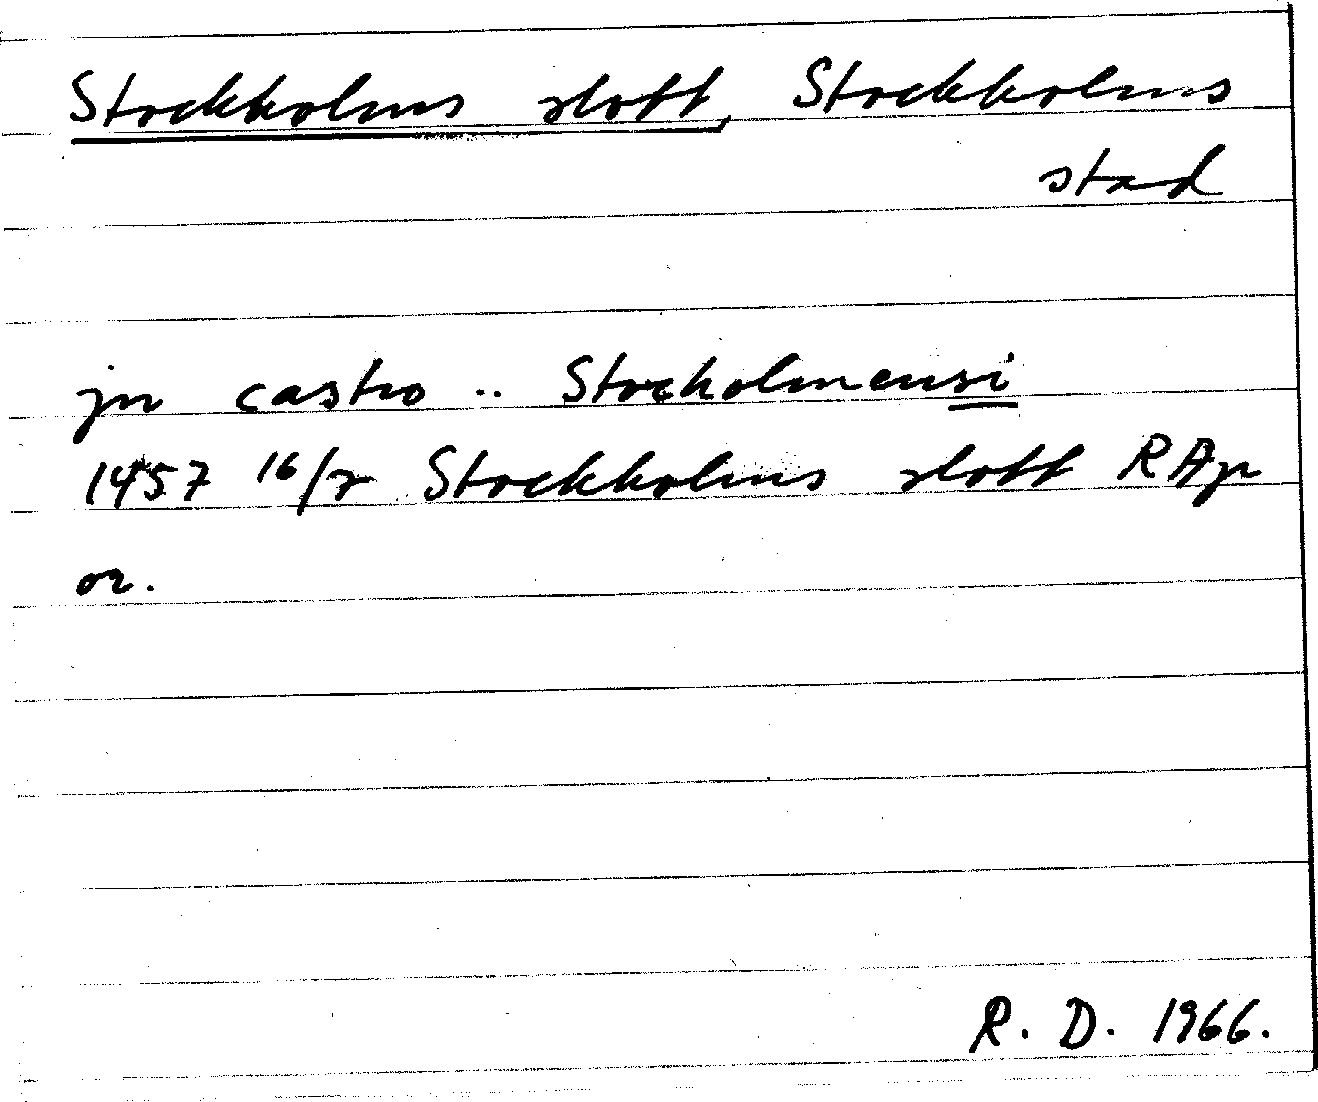 Stockholms slott, Stockholms
stad
jn castro .. Stocholmensi
1457 16/7 Stockholms slott RAp
or.
R. D. 1966.